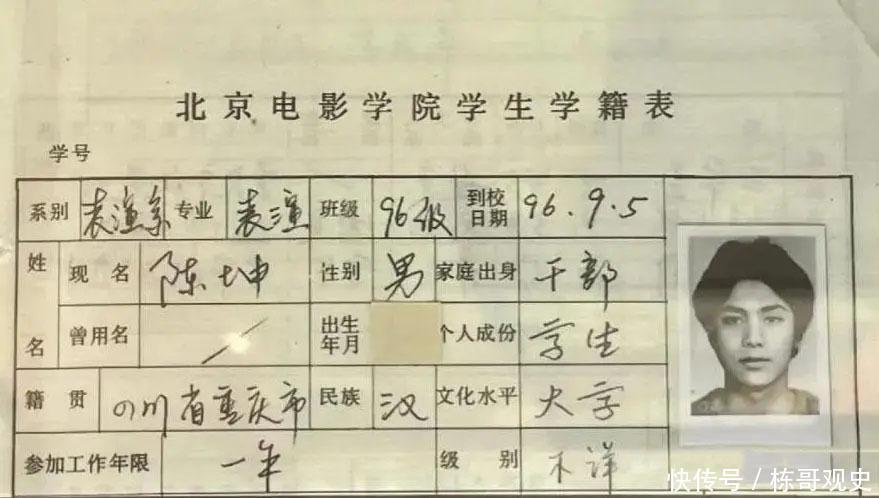 北京电影学院学生学籍表
学号
系别 表演系 专业 表演 班级 96级 到校日期 96.9.5
姓名 现名 陈坤 性别 男 家庭出身 干部
曾用名 / 出生年月 个人成份 学生
籍贯 四川省重庆市 民族 汉 文化水平 大学
参加工作年限 一年 级别 不详
快传号 / 栋哥观史